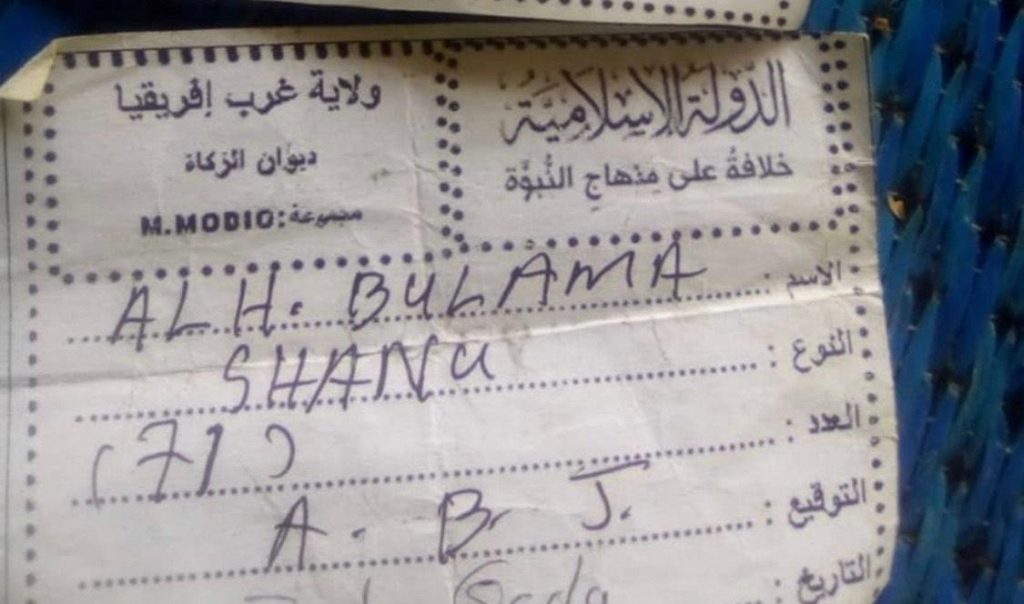 الدولة الإسلامية
خلافةٌ على منهاج النُّبوَّة
ولاية غرب إفريقيا
ديوان الزكاة
مجموعة: M.MODIO
الاسم : ALH. BULAMA
النوع : SHANU
العدد : (71)
التوقيع : A. B. J.
التاريخ :